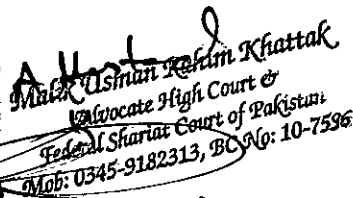 Attested
Malik Usman Rahim Khattak
Advocate High Court &
Federal Shariat Court of Pakistan
Mob: 0345-9182313, BC No: 10-7596